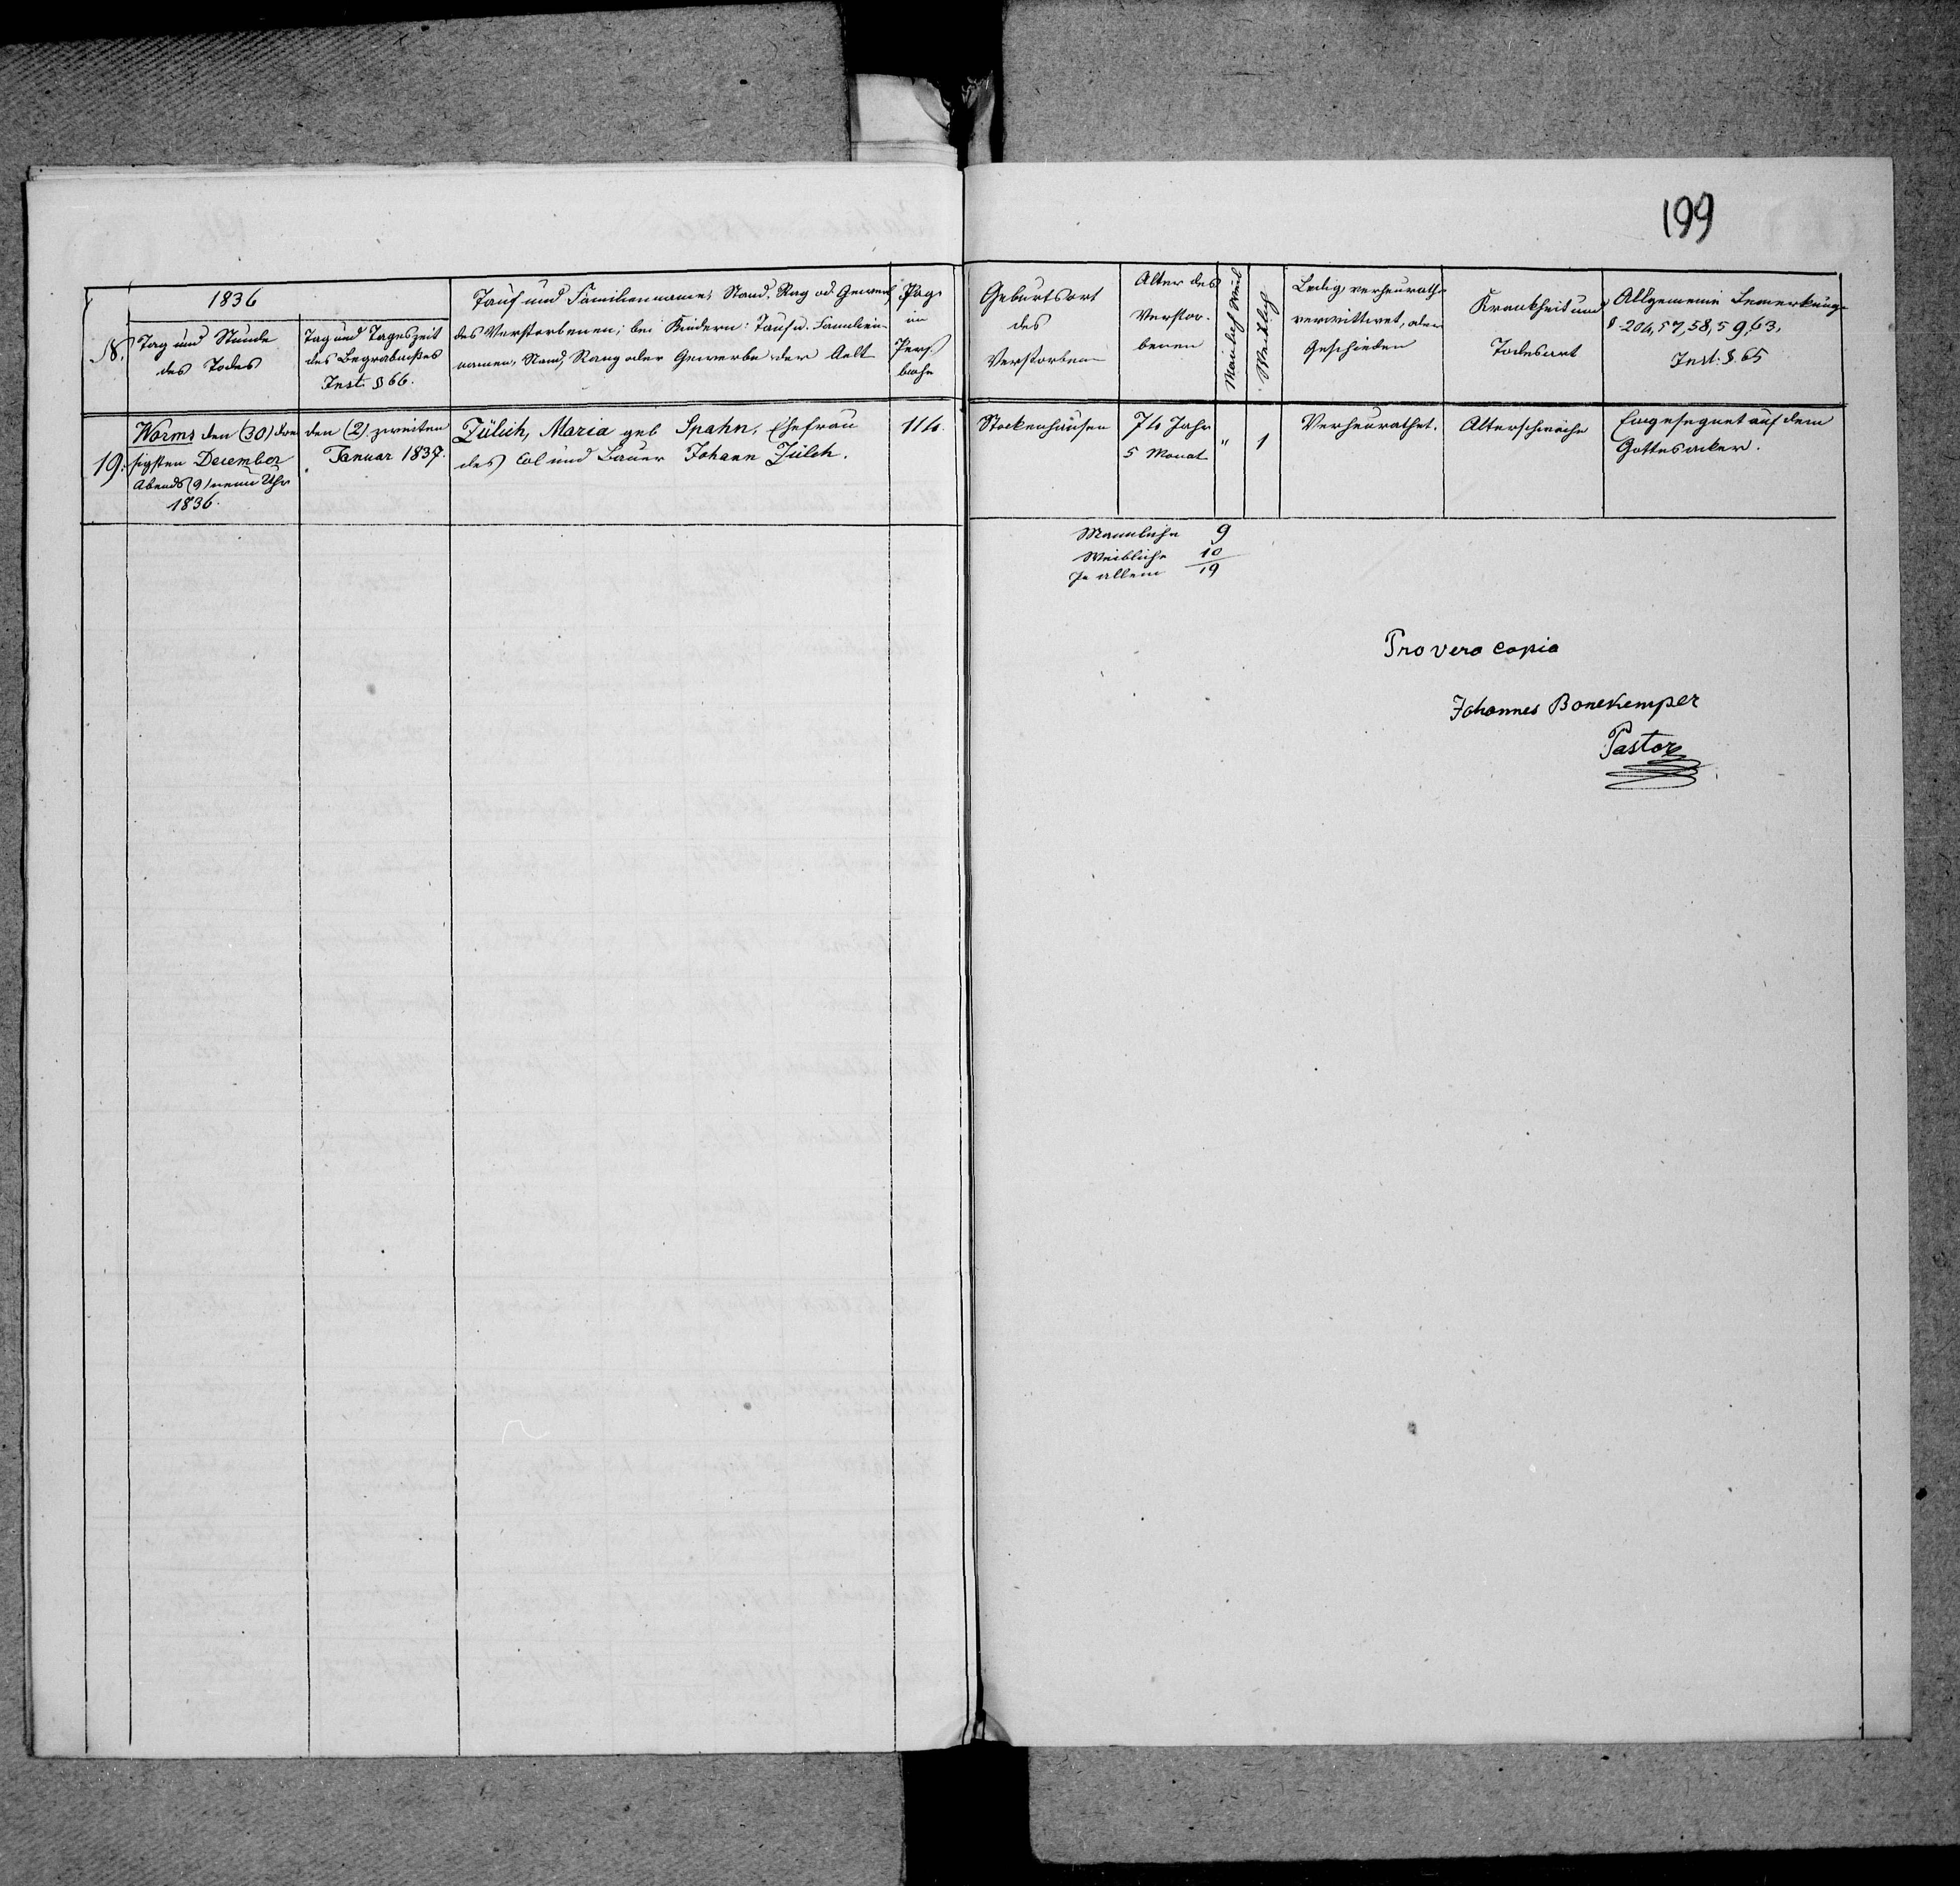 199
1836
N.
Tag und Stunde
des Todes
Tag und Tageszeit
des Begräbnißes
Inst. § 66.
Tauf und Familienname; Stand, Rag od. Gewerb
des Verstorbenen; bei Kindern: Tauf u. Familien-
namen, Stand, Rang oder Gewerbe der Aelt
Pag.
im
Pers.
buche
Geburtsort
des
Verstorben
Alter des
Verstor-
benen
Mänlich
Weiblich
Ledig, verheurath-
verwittwet, oder
Geschieden
Krankheit und
Todesart
Allgemeine Bemerkung-
§ 204, 57, 58, 59, 63,
Inst. § 65
19.
Worms den (30) drei
sigsten December
Abends (9) neun Uhr
1836.
den (2) zweiten
Januar 1837.
Zülich, Maria geb Spahn, Ehefrau
des Col und Bauer Johann Zülch.
116.
Stockenhäusen
76 Jahr
5 Monat
"
1
Verheurathet.
Alterschwäche
Eingesegnet auf dem
Gottesacker.
Mannliche 9
Weibliche 10
In allem 19
Pro vera copia
Johannes Bonekemper
Pastor